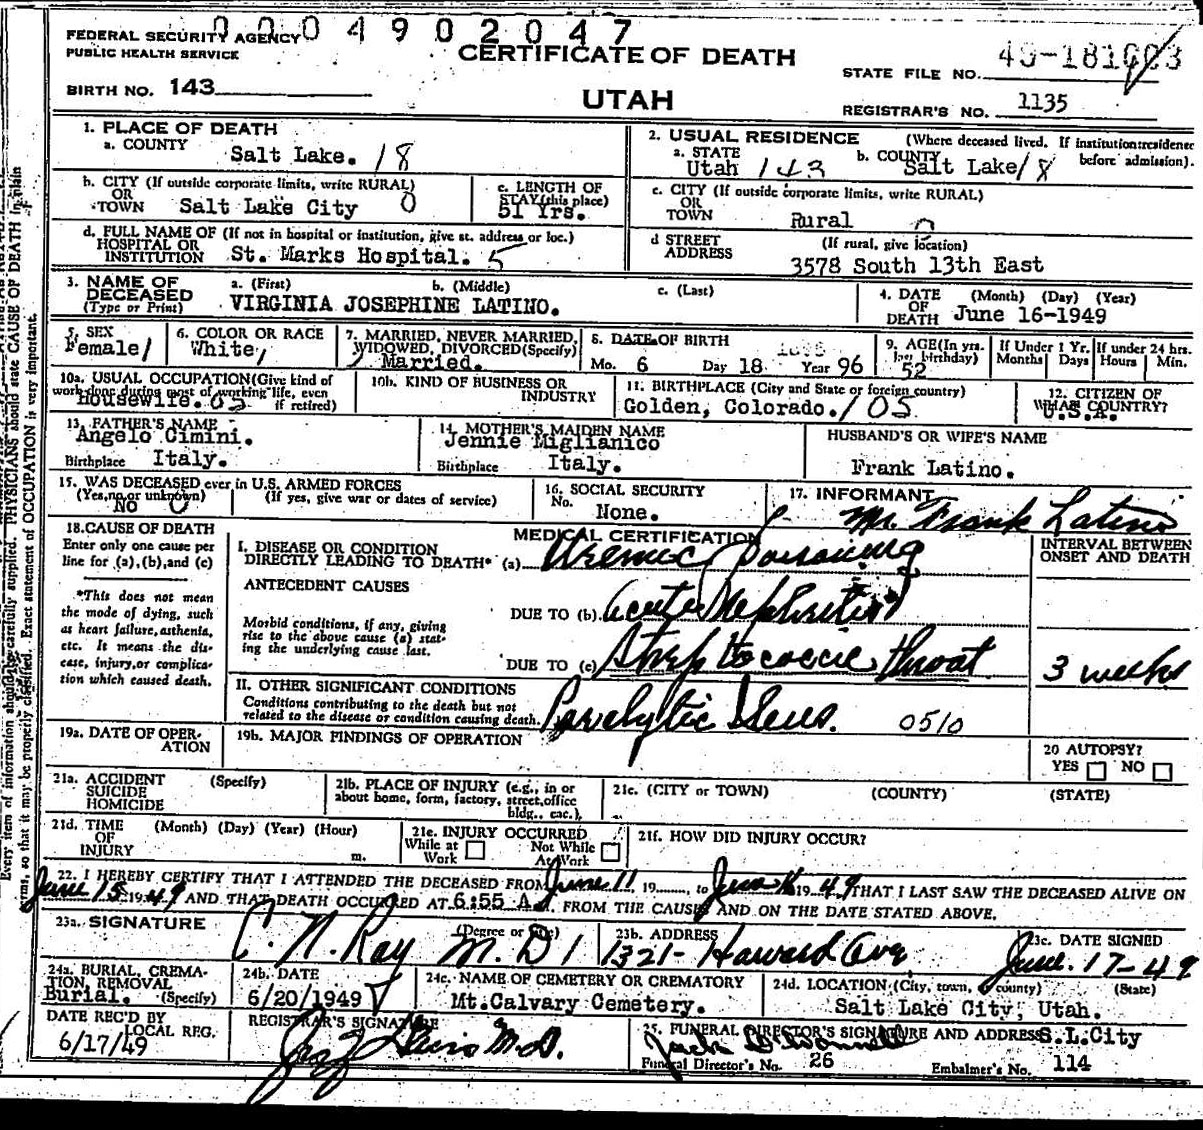 0004902047
FEDERAL SECURITY AGENCY
PUBLIC HEALTH SERVICE
CERTIFICATE OF DEATH
STATE FILE NO.
BIRTH NO. 143
UTAH
REGISTRAR'S NO. 1135
1. PLACE OF DEATH
a. COUNTY
Salt Lake. 18
2. USUAL RESIDENCE (Where deceased lived. If institution:residence before admission).
a. STATE
Utah 143
b. COUNTY
Salt Lake/8
b. CITY (If outside corporate limits, write RURAL)
OR
TOWN Salt Lake City 0
c. LENGTH OF
STAY (this place)
51 Yrs.
c. CITY (If outside corporate limits, write RURAL)
OR
TOWN
Rural 0
d. FULL NAME OF (If not in hospital or institution, give st. address or loc.)
HOSPITAL OR
INSTITUTION St. Marks Hospital. 5
d STREET
ADDRESS
(If rural, give location)
3578 South 13th East
3. NAME OF
DECEASED
(Type or Print)
a. (First) b. (Middle) c. (Last)
VIRGINIA JOSEPHINE LATINO.
4. DATE
OF
DEATH
(Month) (Day) (Year)
June 16-1949
5. SEX
Female/
6. COLOR OR RACE
White,
7. MARRIED, NEVER MARRIED,
WIDOWED, DIVORCED(Specify)
Married.
8. DATE OF BIRTH
Mo. 6 Day 18 Year 96
9. AGE(In yrs.
last birthday)
52
If Under 1 Yr.
Months Days
If under 24 hrs.
Hours Min.
10a. USUAL OCCUPATION(Give kind of
work done during most of working life, even
if retired)
Housewife. 05
10b. KIND OF BUSINESS OR
INDUSTRY
11. BIRTHPLACE (City and State or foreign country)
Golden, Colorado. / 05
12. CITIZEN OF
WHAT COUNTRY?
U.S.A.
13. FATHER'S NAME
Angelo Cimini.
Birthplace Italy.
14. MOTHER'S MAIDEN NAME
Jennie Miglianico
Birthplace Italy.
HUSBAND'S OR WIFE'S NAME
Frank Latino.
15. WAS DECEASED ever in U.S. ARMED FORCES
(Yes,no or unknown) (If yes, give war or dates of service)
No 0
16. SOCIAL SECURITY
No.
None.
17. INFORMANT
Mr. Frank Latino
18.CAUSE OF DEATH
Enter only one cause per
line for (a),(b),and (c)
*This does not mean
the mode of dying, such
as heart failure,asthenia,
etc. It means the dis-
ease, injury,or complica-
tion which caused death.
MEDICAL CERTIFICATION
INTERVAL BETWEEN
ONSET AND DEATH
I. DISEASE OR CONDITION
DIRECTLY LEADING TO DEATH* (a) Uremic Poisoning
ANTECEDENT CAUSES
DUE TO (b) Acute Nephritis
Morbid conditions, if any, giving
rise to the above cause (a) stat-
ing the underlying cause last.
DUE TO (c) Streptococcic throat
3 weeks
II. OTHER SIGNIFICANT CONDITIONS
Conditions contributing to the death but not
related to the disease or condition causing death.
Paralytic Ileus. 0510
19a. DATE OF OPER-
ATION
19b. MAJOR FINDINGS OF OPERATION
20 AUTOPSY?
YES NO
21a. ACCIDENT
SUICIDE
HOMICIDE
(Specify)
21b. PLACE OF INJURY (e.g., in or
about home, form, factory, street,office
bldg., eac.),
21c. (CITY or TOWN) (COUNTY) (STATE)
21d. TIME
OF
INJURY
(Month) (Day) (Year) (Hour)
m.
21e. INJURY OCCURRED
While at
Work
Not While
At Work
21f. HOW DID INJURY OCCUR?
22. I HEREBY CERTIFY THAT I ATTENDED THE DECEASED FROM June 11, 19......., to June 16 19 49 THAT I LAST SAW THE DECEASED ALIVE ON
June 15 19 49 AND THAT DEATH OCCURED AT 6:55 A.M. FROM THE CAUSES AND ON THE DATE STATED ABOVE.
23a. SIGNATURE
C. N. Ray M. D
(Degree or title)
23b. ADDRESS
1321- Harvard Ave
23c. DATE SIGNED
June. 17-49
24a. BURIAL, CREMA-
TION, REMOVAL
Burial. (Specify)
24b. DATE
6/20/1949
24c. NAME OF CEMETERY OR CREMATORY
Mt.Calvary Cemetery.
24d. LOCATION (City, town, or county) (State)
Salt Lake City, Utah.
DATE REC'D BY
LOCAL REG.
6/17/49
REGISTRAR'S SIGNATURE
M.D.
25. FUNERAL DIRECTOR'S SIGNATURE AND ADDRESS S.L.City
Jack O'Donnell
Funeral Director's No. 26
Embalmer's No. 114